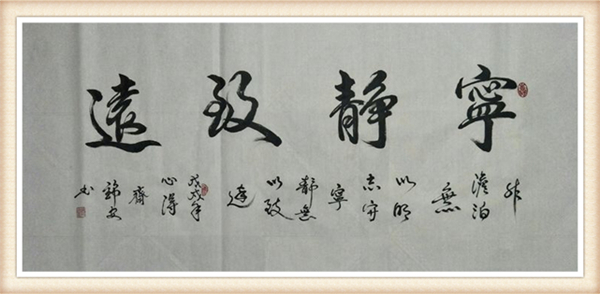 寧靜致遠
非
澹泊
無
以明
志守
寧
靜無
以致
遠
戊戌年
心得
齋
錦安
书